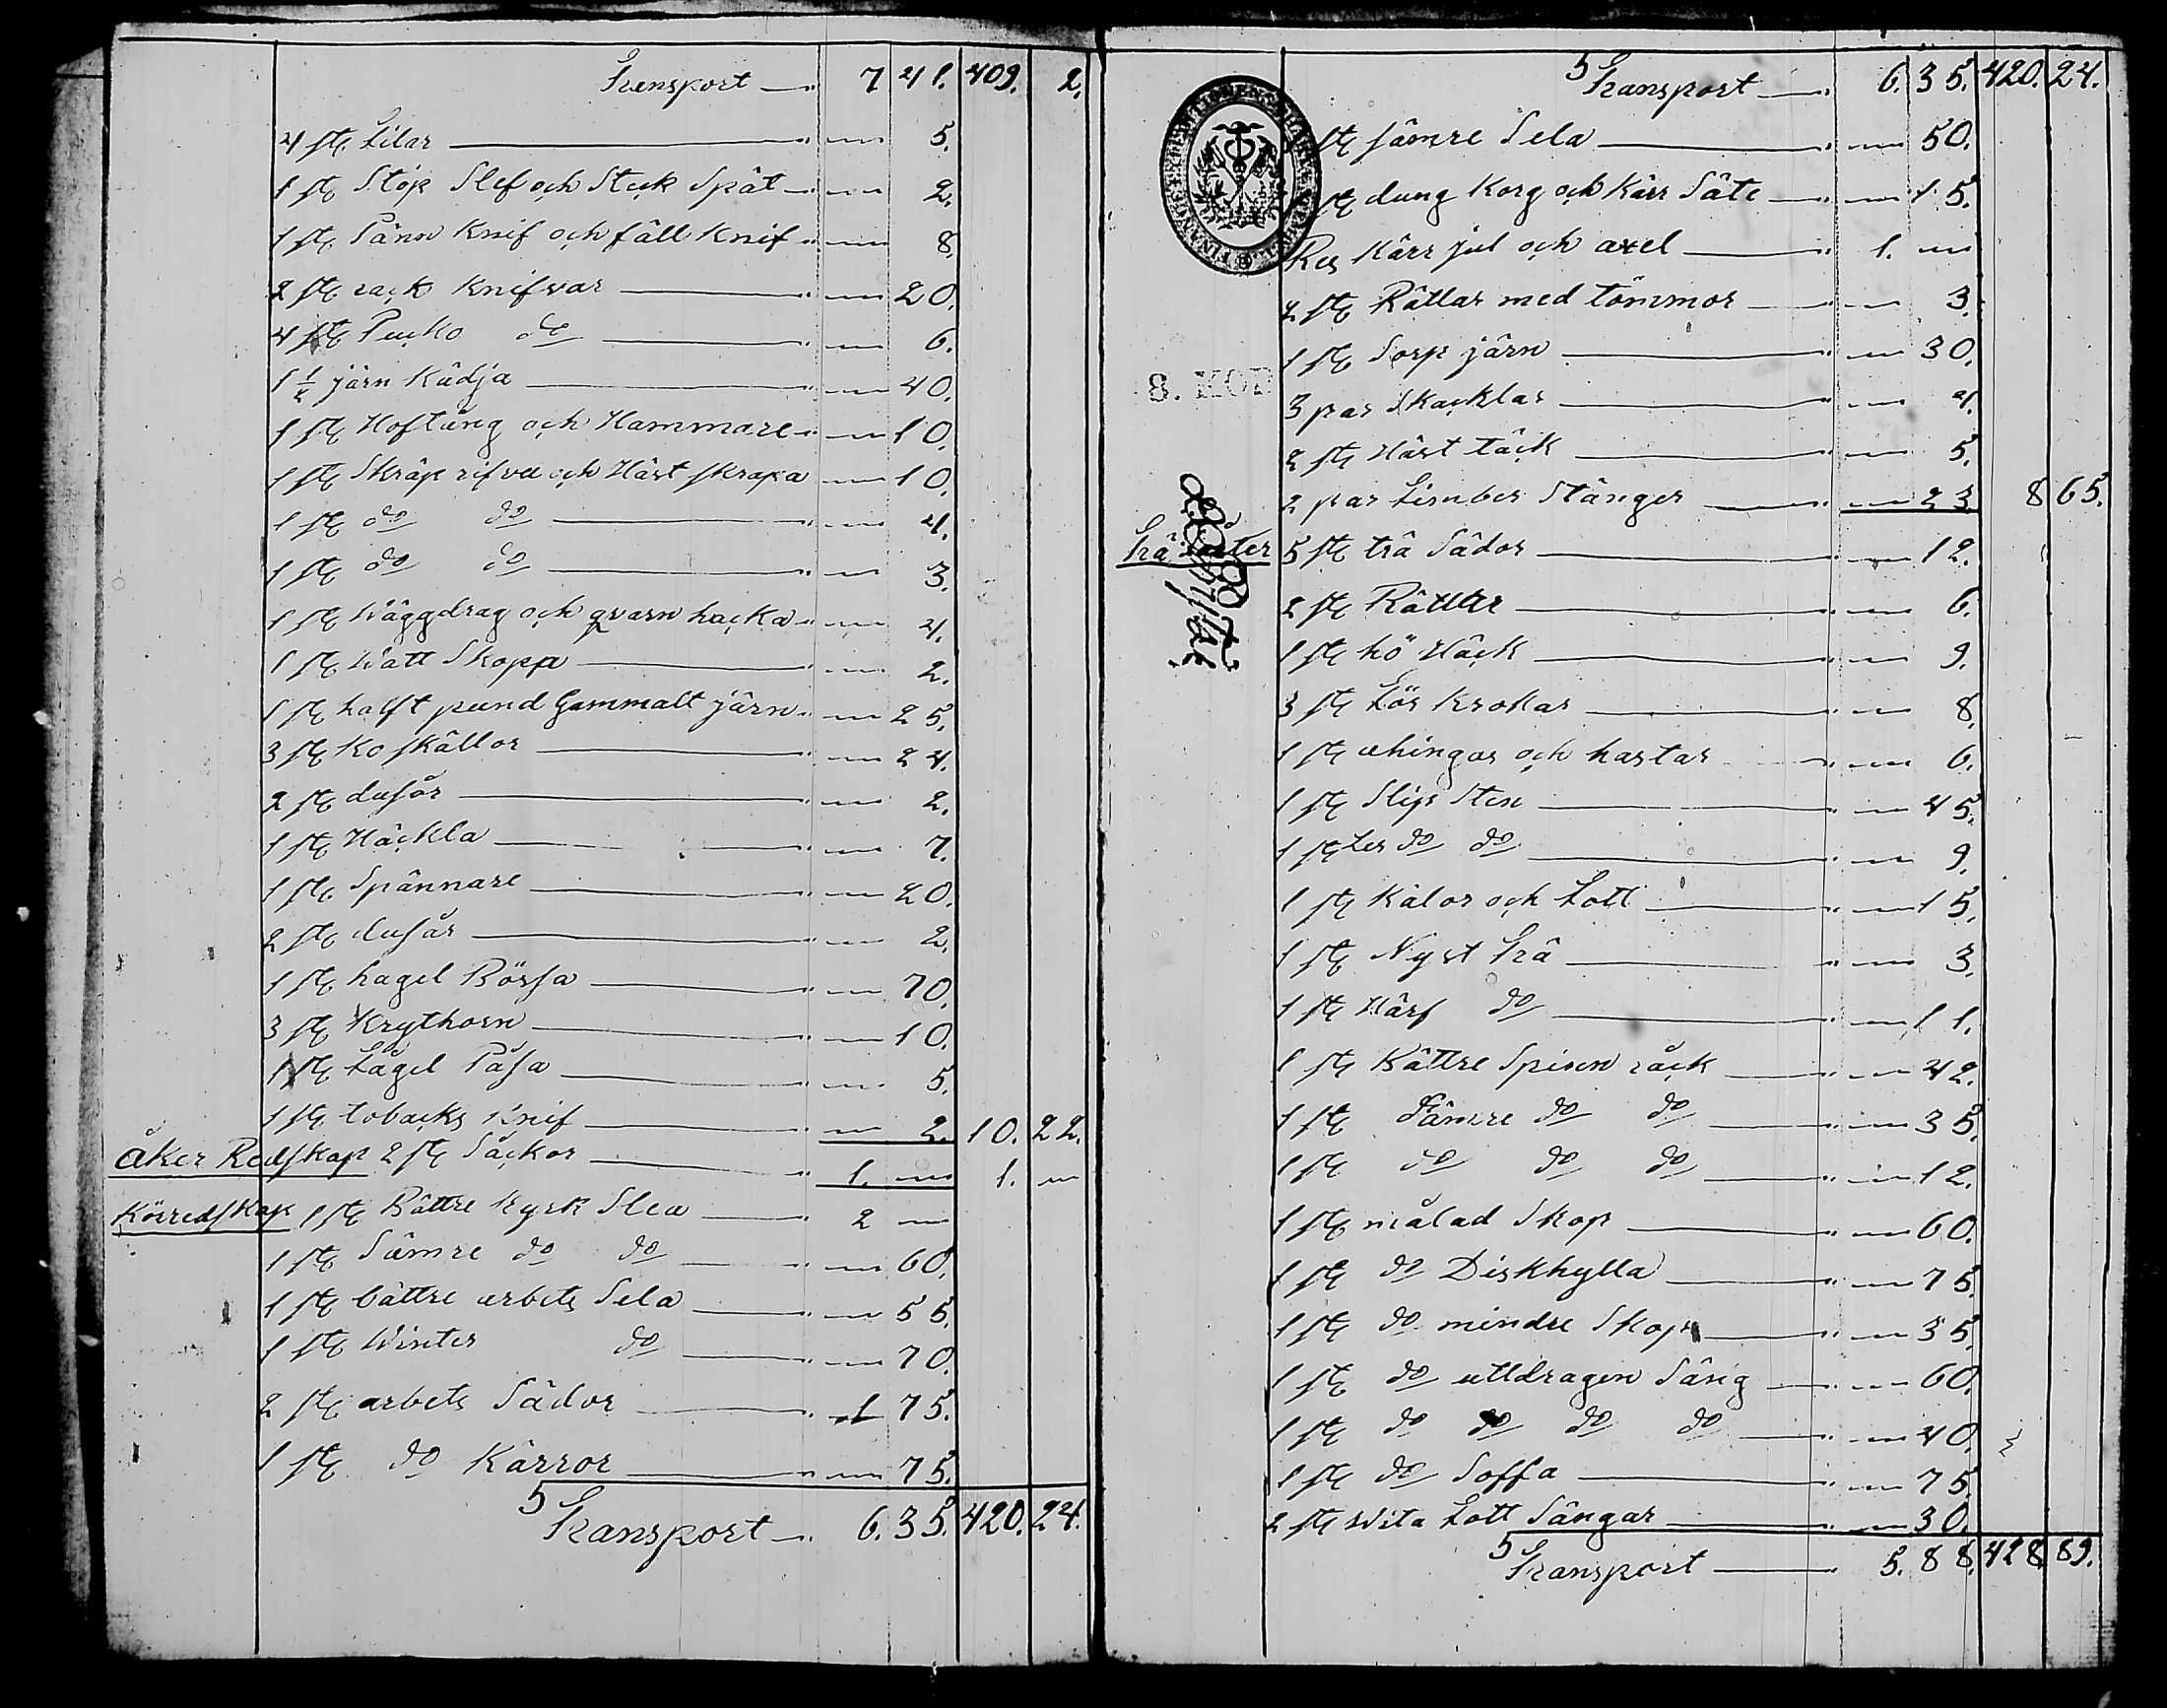 Transport — 7 41. 409. 2.
4 stg Lilar — " — 5.
1 stg Stöp Slef och Steck Spåt — " — 2.
1 stg Pänn Knif och fäll Knif — " — 8.
2 stg rack Knifvar — " — 20.
4 stg Pucko do — " — 6.
1 1/2 järn Kädja — " — 40.
1 stg Hoftång och Hammare — " — 10.
1 stg Skråp rifva och Häst skrapa — " — 10.
1 stg do do — " — 4.
1 stg do do — " — 3.
1 stg Wäggdrag och qvarn hacka — " — 4.
1 stg Watt Skopa — " — 2.
1 stg halft pund Gammalt järn — " — 25.
3 stg Ko skällor — " — 24.
2 stg dusör — " — 2.
1 stg Häckla — " — 7.
1 stg Spännare — " — 20.
2 stg dusår — " — 2.
1 stg hagel Bössa — " — 70.
3 stg Krythorn — " — 10.
1 stg Lågel Påsa — " — 5.
1 stg tobacks Knif — " — 2. 10. 22.
åker Redskap 2 stg Säckor — 1. — 1. —
Körredskap 1 stg Bättre Kyrk Slea — 2 —
1 stg Sämre do do — " — 60.
1 stg bättre arbets Sela — " — 55.
1 stg Winter do — " — 70.
2 stg arbets Sädor — 1 75.
1 stg do Kärror — " — 75.
5 Transport — 6. 35. 420. 24.
5 Transport — 6. 35. 420. 24.
stg sämre Sela — " — 50.
stg dung Korg och Kärr Säte — " — 15.
Res Kärr jul och axel — 1. —
2 stg Rättar med tömmor — " — 3.
8. KOP
1 stg Sorp järn — " — 30.
3 par Skacklar — " — 4.
2 stg Häst täck — " — 5.
2 par Limber Stänger — " — 23 8 65.
5 stg trä Sädor — " — 12.
2 stg Rättter — " — 6.
1 stg hö Häck — " — 9.
3 stg Lör Krokar — " — 8.
1 stg ehingar och hartar — " — 6.
1 stg Slip Sten — " — 45.
1 stg Ler do do — " — 9.
1 stg Kälor och Lott — " — 15.
1 stg Nyst trä — " — 3.
1 stg Härf do — " — 11.
1 stg Bättre Spinn råck — " — 42.
1 stg Sämre do do — " — 35.
1 stg do do do — " — 12.
1 stg målad Skop — " — 60.
1 stg do Diskhylla — " — 75.
1 stg do mindre Skop — " — 35.
1 stg do uttdragen Säng — " — 60.
1 stg do do do do — " — 40.
1 stg do Soffa — " — 75.
2 stg Wita Lott Sängar — " — 30.
5 Transport — 5. 88. 428 89.